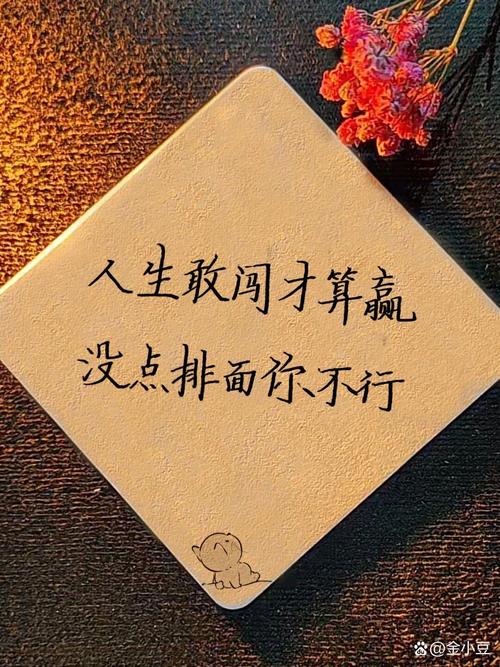 人生敢闯才算赢
没点排面你不行
@金小豆